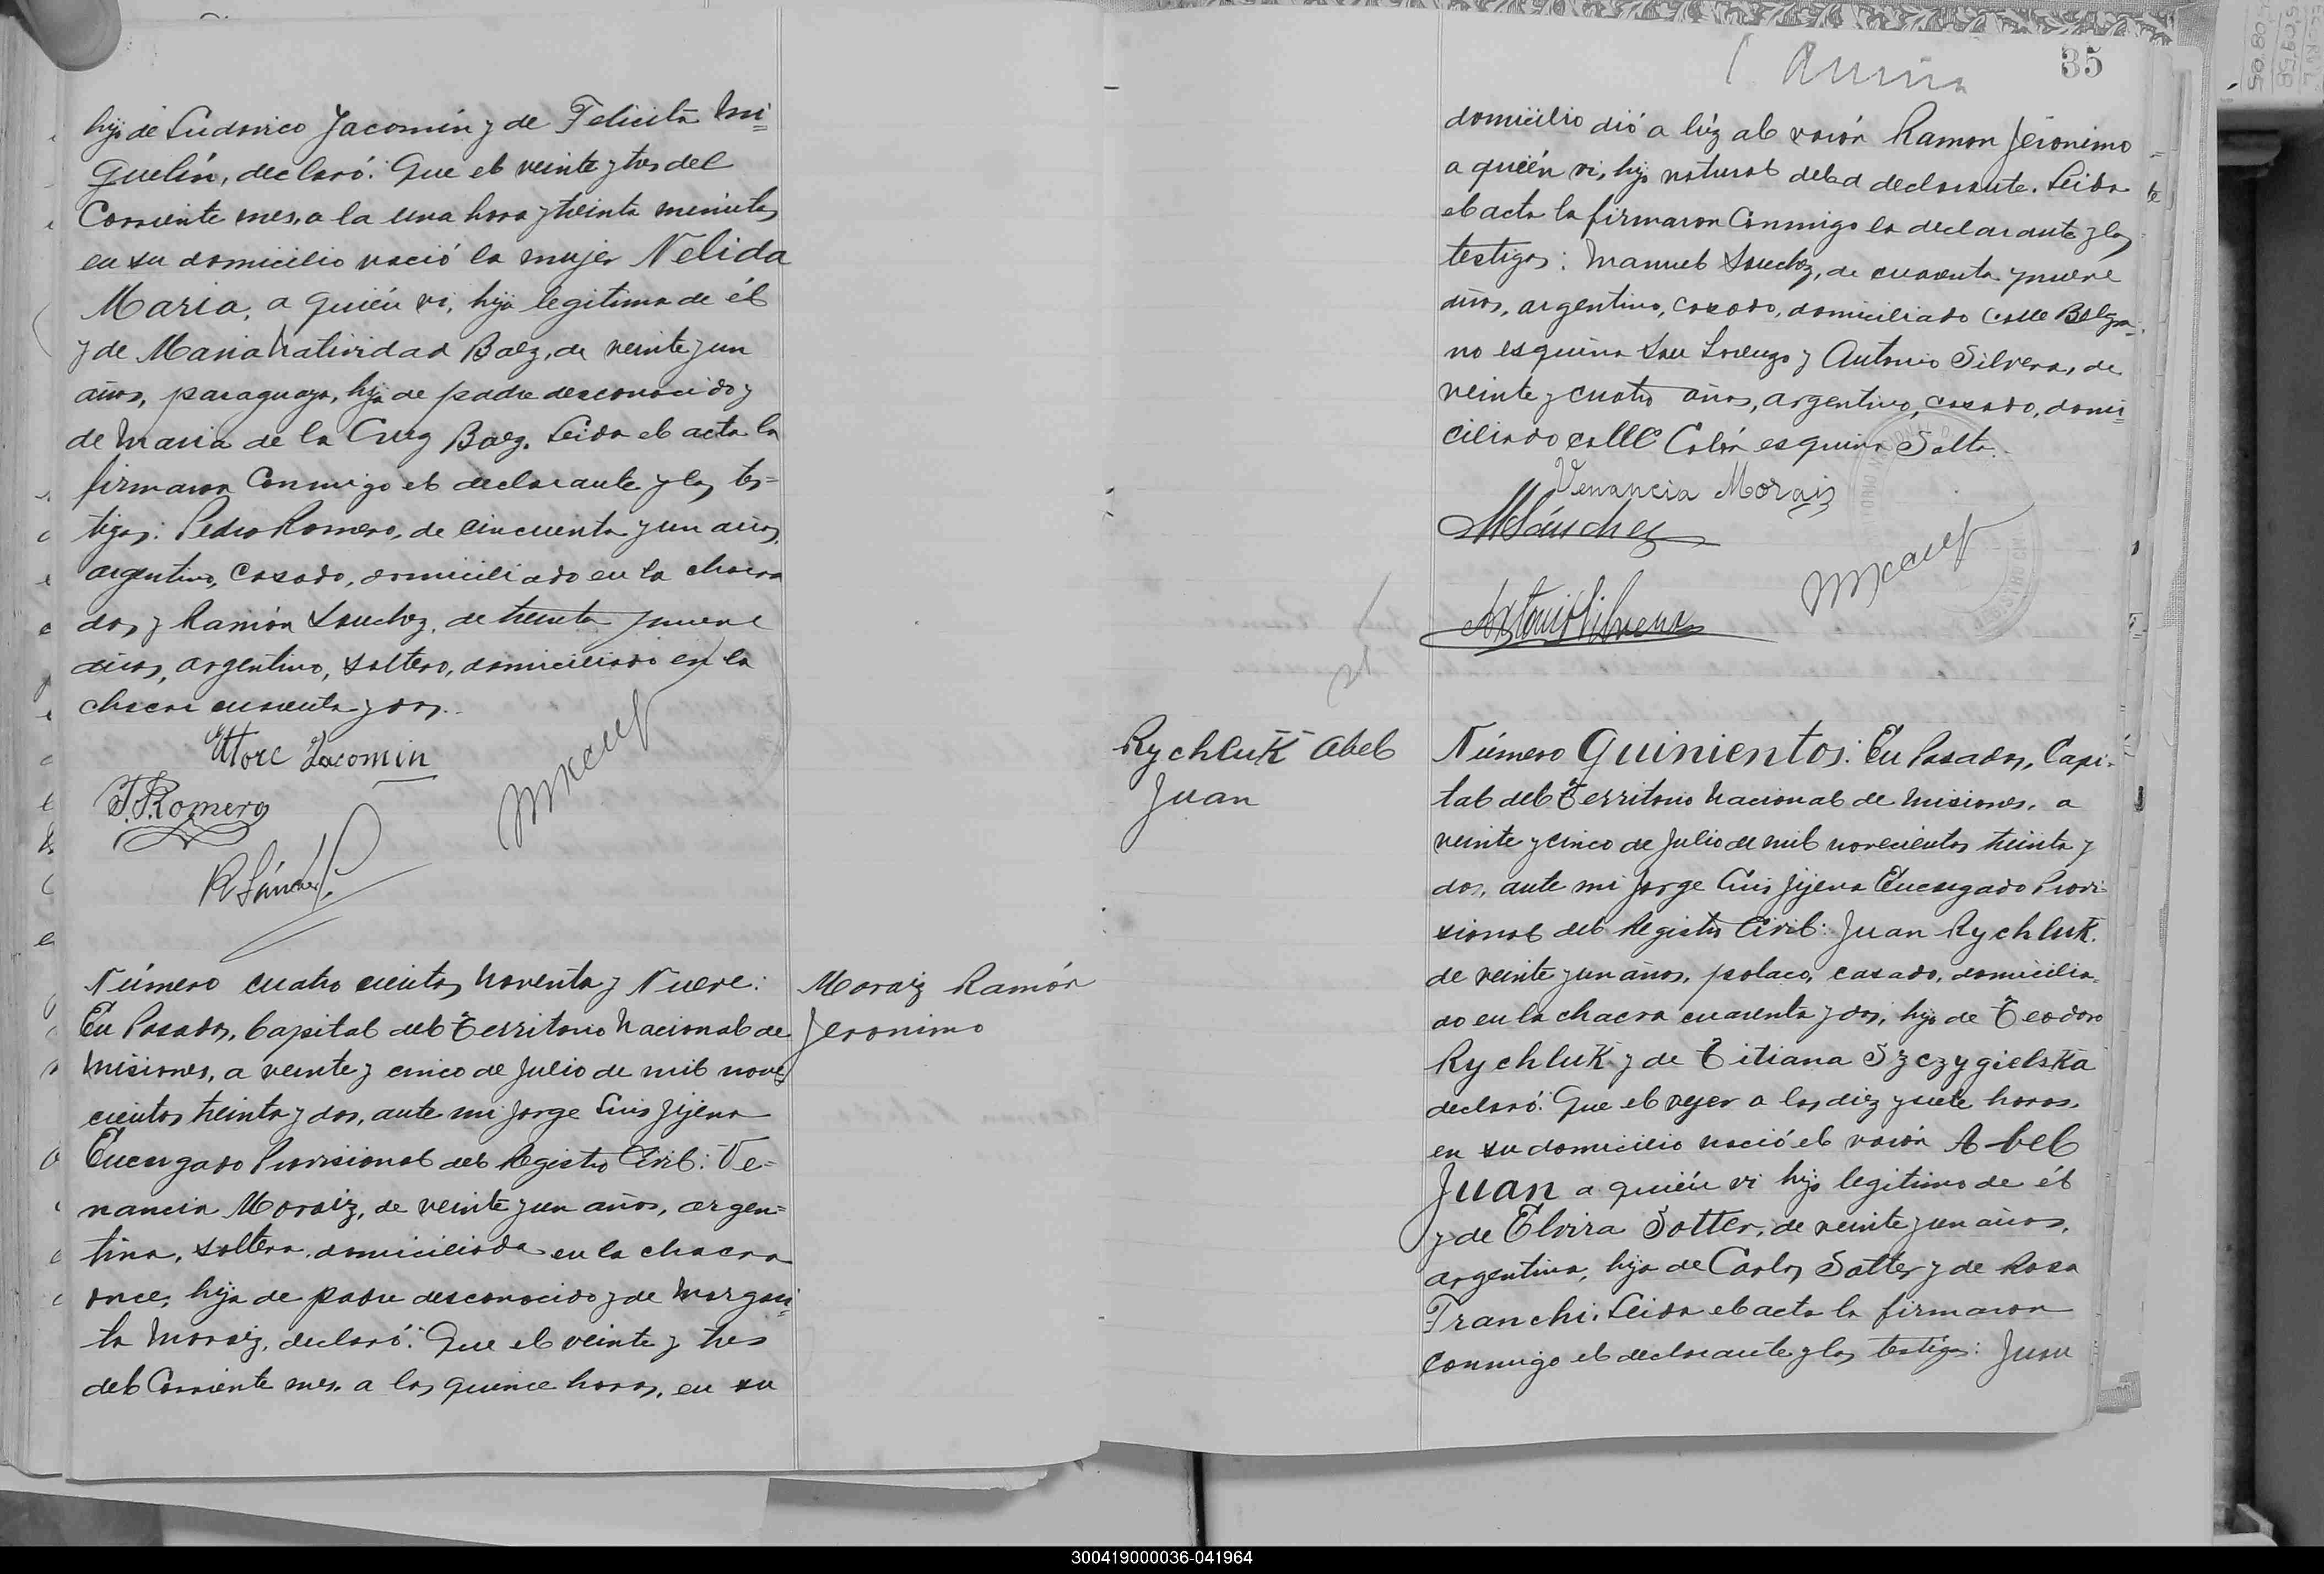 hijo de Ludovico Jacomín y de Felicita Mi=
guelín, declaró: Que el veinte y tres del
Corriente mes, a la una hora y treinta minutos
en su domicilio nació la mujer Nelida
Maria, a quién vi, hija legitima de él
y de Maria Natividad Baez, de veinte y un
años, paraguaya, hija de padre desconocido y
de Maria de la Cruz Baez. Leida el acta la
firmaron Conmigo el declarante y los tes=
tigos: Pedro Romero, de cincuenta y un años,
argentino, Casado, domiciliado en la chacra
dos y Ramón Sanchez, de treinta y nueve
años, argentino, soltero, domiciliado en la
chacra cuarenta y dos.
Ettore Jacomin
P. Romero
R Sánchez
Número cuatro cientos Noventa y Nueve:
En Posadas, Capital del Territorio Nacional de
Misiones, a veinte y cinco de Julio de mil nove
cientos treinta y dos, ante mi Jorge Luis Jijena
Encargado Provisional del Registro Civil: Ve=
nancia Moraiz, de veinte y un años, argen=
tina, soltera, domiciliada en la chacra
once, hija de padre desconocido y de Margari=
ta Moraiz, declaró: Que el veinte y tres
del Corriente mes, a las quince horas, en su
Moraiz Ramón
Jeronimo
35
domicilio dió a lúz al varón Ramon Jeronimo
a quién vi, hijo natural de la declarante. Leida
el acta la firmaron Conmigo la declarante y los
testigos: Manuel Sanchez, de cuarenta y nueve
años, argentino, casado, domiciliado calle Belgra=
no esquina San Lorenzo y Antonio Silvera, de
veinte y cuatro años, argentino, casado, domi=
ciliado calle Colón esquina Salta.
Venancia Moraiz
MSánchez
Antonio Silvera
Rychluk Abel
Juan
Número Quinientos: En Posadas, Capi-
tal del Territorio Nacional de Misiones, a
veinte y cinco de Julio de mil novecientos treinta y
dos, ante mi Jorge Luis Jijena Encargado Provi-
sional del Registro Civil: Juan Rychluk,
de veinte y un años, polaco, casado, domicilia-
do en la chacra cuarenta y dos, hijo de Teodoro
Rychluk y de Titiana Szczygielska
declaró: Que el ayer a las diez y siete horas,
en su domicilio nació el varón Abel
Juan a quién vi hijo legitimo de él
y de Elvira Sotter, de veinte y un años,
argentina, hija de Carlos Sotter y de Rosa
Franchi. Leida el acta la firmaron
conmigo el declarante y los testigos: Juan
300419000036-041964